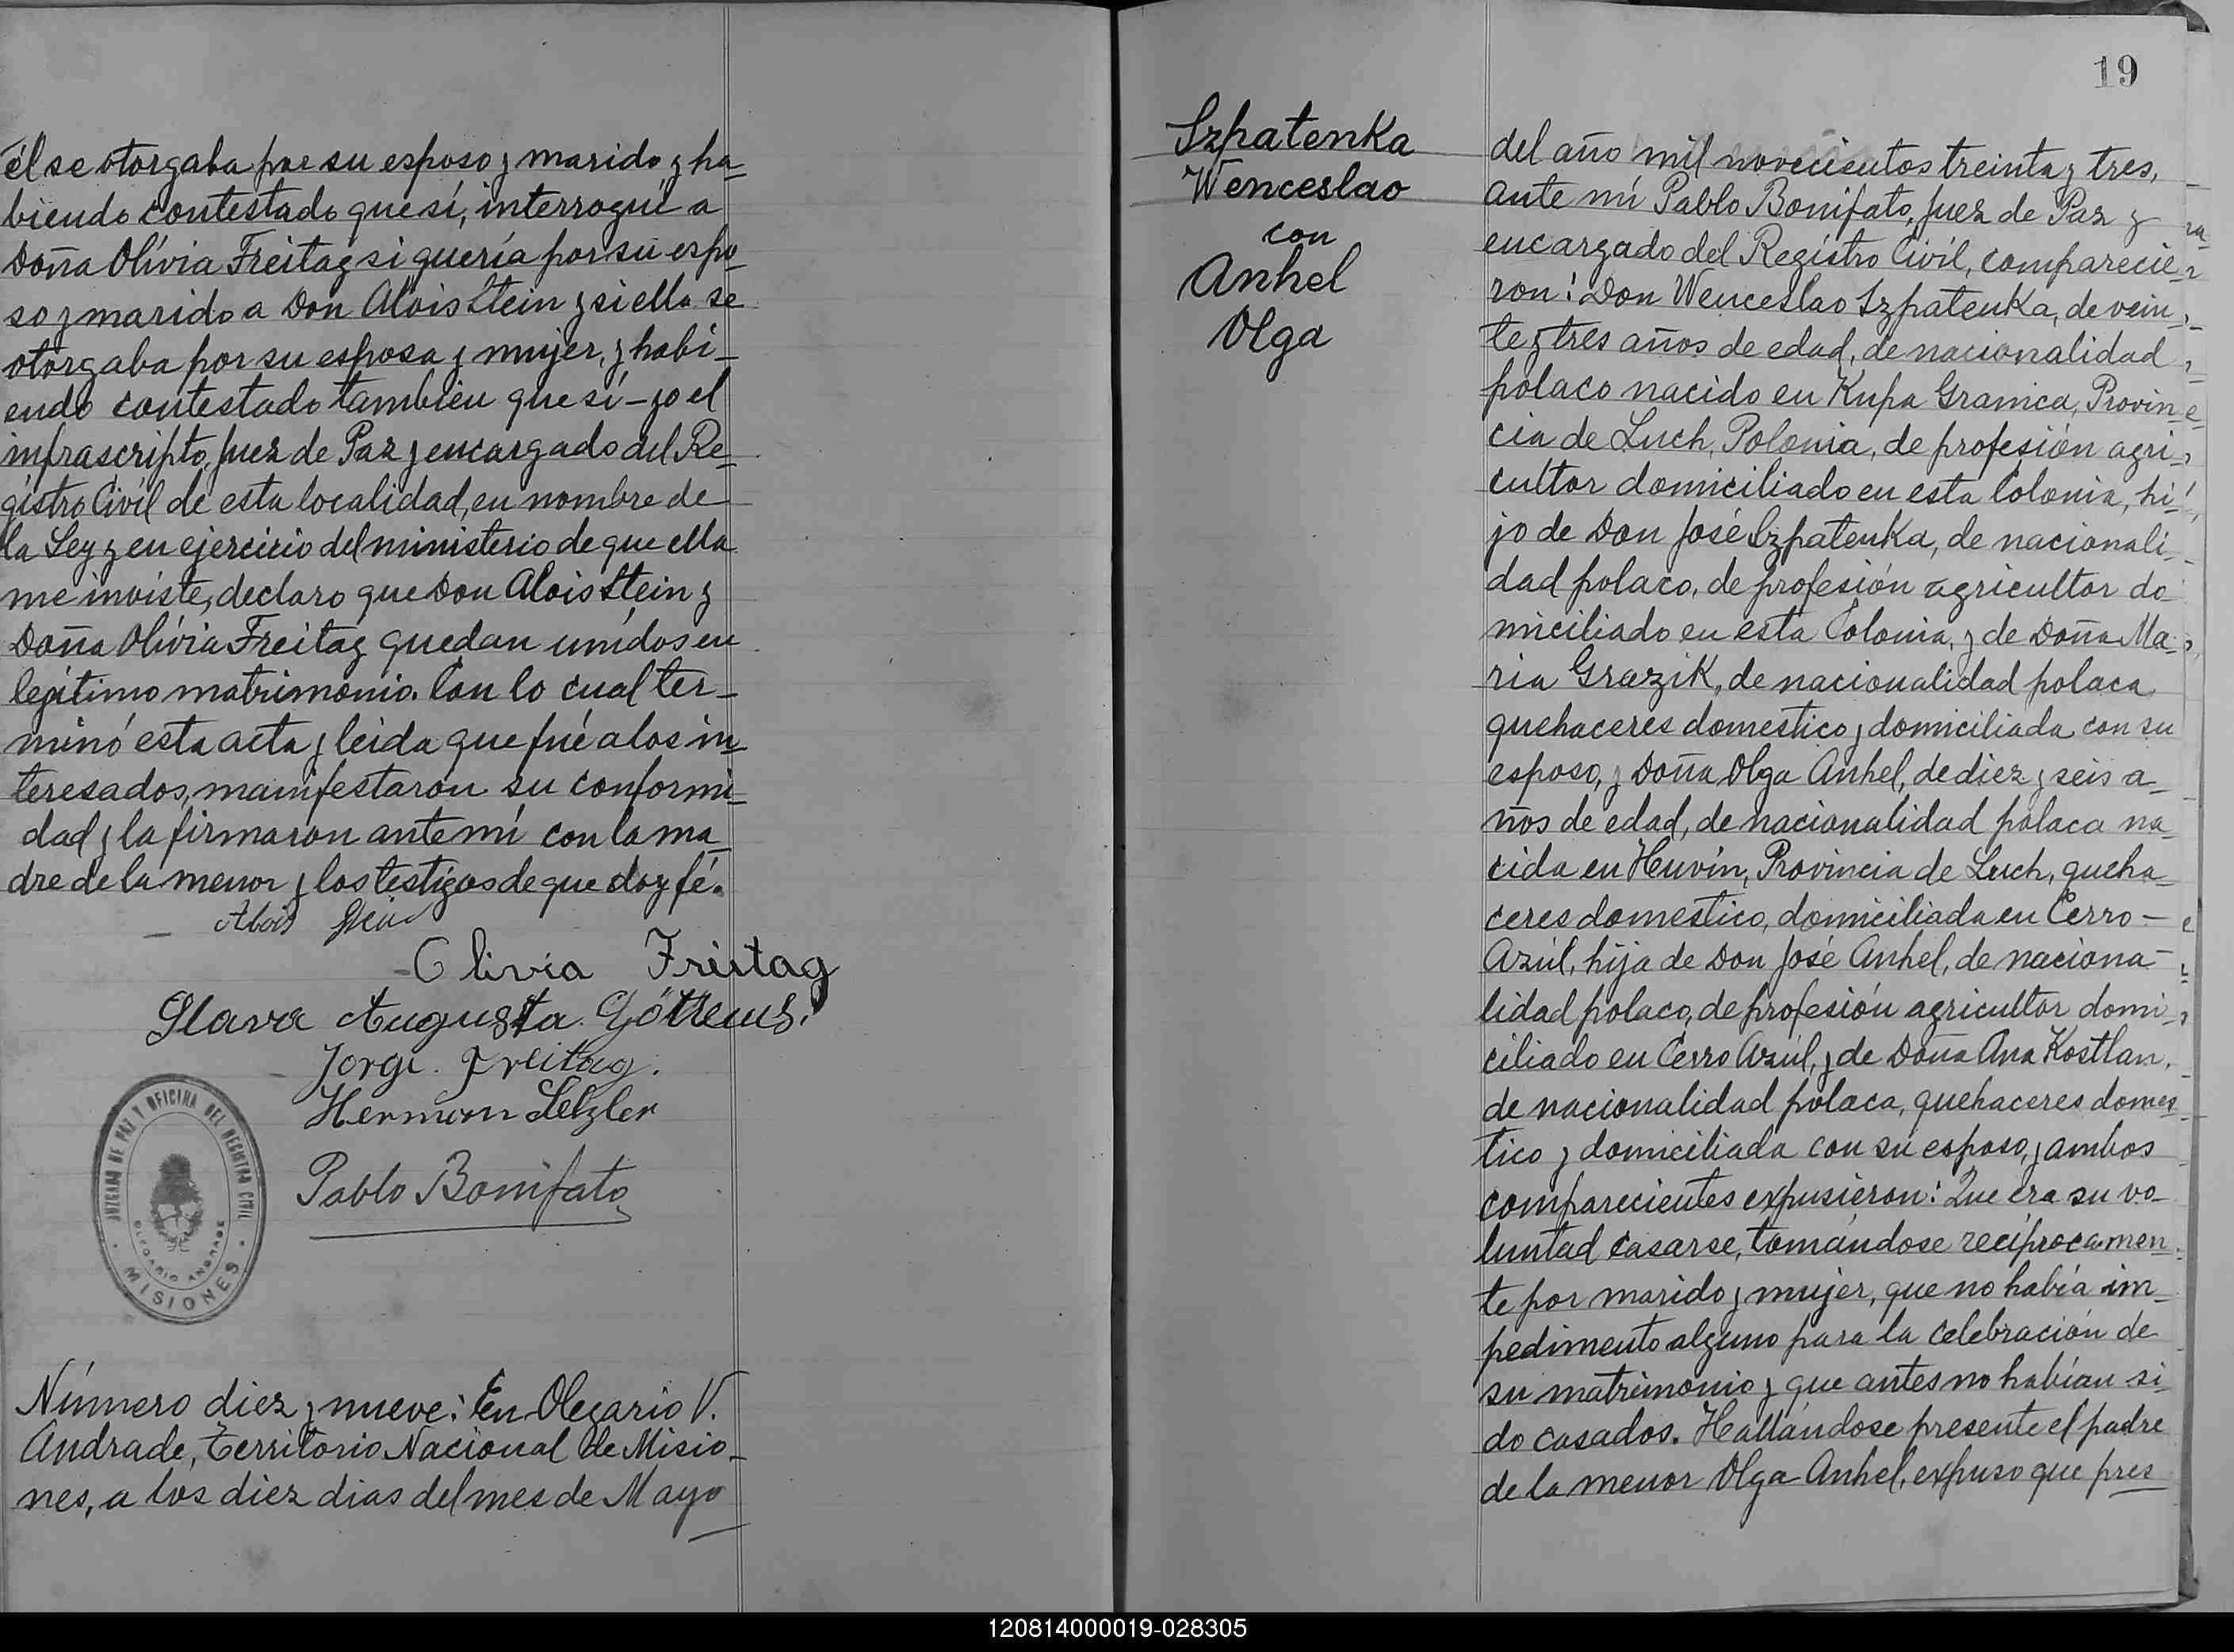 él se otorgaba por su esposo y marido y ha-
biendo contestado que sí, interrogué a
Doña Olívia Freitag si quería por su espo-
so y marido a Don Alois Stein y si ella se
otorgaba por su esposa y mujer, y habi-
endo contestado también que sí - yo el
infrascripto, Juez de Paz y encargado del Re-
gistro Civil de esta localidad, en nombre de
la Ley y en ejercicio del ministerio de que ella
me inviste, declaro que Don Alois Stein y
Doña Olívia Freitag quedan unídos en
legítimo matrimonio. Con lo cual ter-
minó esta acta y leida que fué a los in-
teresados, manifestaron su conformi-
dad y la firmaron ante mí con la ma-
dre de la menor y los testigos de que doy fé.
Alois Stein
Olivia Freitag
Augusta
Jorge. Freitag.
Herman
Pablo Bonifato
JUZGADO DE PAZ Y OFICINA DEL REGISTRO CIVIL
OLEGARIO ANDRADE
MISIONES
Número diez y nueve: En Olegario V.
Andrade, Territorio Nacional de Misio-
nes, a los diez dias del mes de Mayo
19
Szpatenka
Wenceslao
con
Anhel
Olga
del año mil novecientos treinta y tres,
ante mí Pablo Bonifato, Juez de Paz y
encargado del Registro Civil, comparecie-
ron: Don Wenceslao Szpatenka, de vein-
te y tres años de edad, de nacionalidad
polaco nacido en Kupa Granica, Provin-
cia de Luch, Polonia, de profesión agri-
cultor domiciliado en esta Colonia, hi-
jo de Don José Szpatenka, de nacionali-
dad polaco, de profesión agricultor do-
miciliado en esta Colonia, y de Doña Ma-
ria Grazik, de nacionalidad polaca
quehaceres domestico y domiciliada con su
esposo, y Doña Olga Anhel, de diez y seis a-
ños de edad, de nacionalidad polaca na-
cida en Huvín, Provincia de Luch, queha-
ceres domestico, domiciliada en Cerro -
Azúl, hija de Don José Anhel, de naciona-
lidad polaco, de profesión agricultor domi-
ciliado en Cerro Azúl, y de Doña Ana Kostlan,
de nacionalidad polaca, quehaceres domes-
tico y domiciliada con su esposo, y ambos
comparecientes expusieron: Que era su vo-
luntad casarse, tomándose recíprocamen-
te por marido y mujer, que no había im-
pedimento alguno para la celebración de
su matrimonio y que antes no habían si-
do casados. Hallándose presente el padre
de la menor Olga Anhel, expuso que pres
120814000019-028305